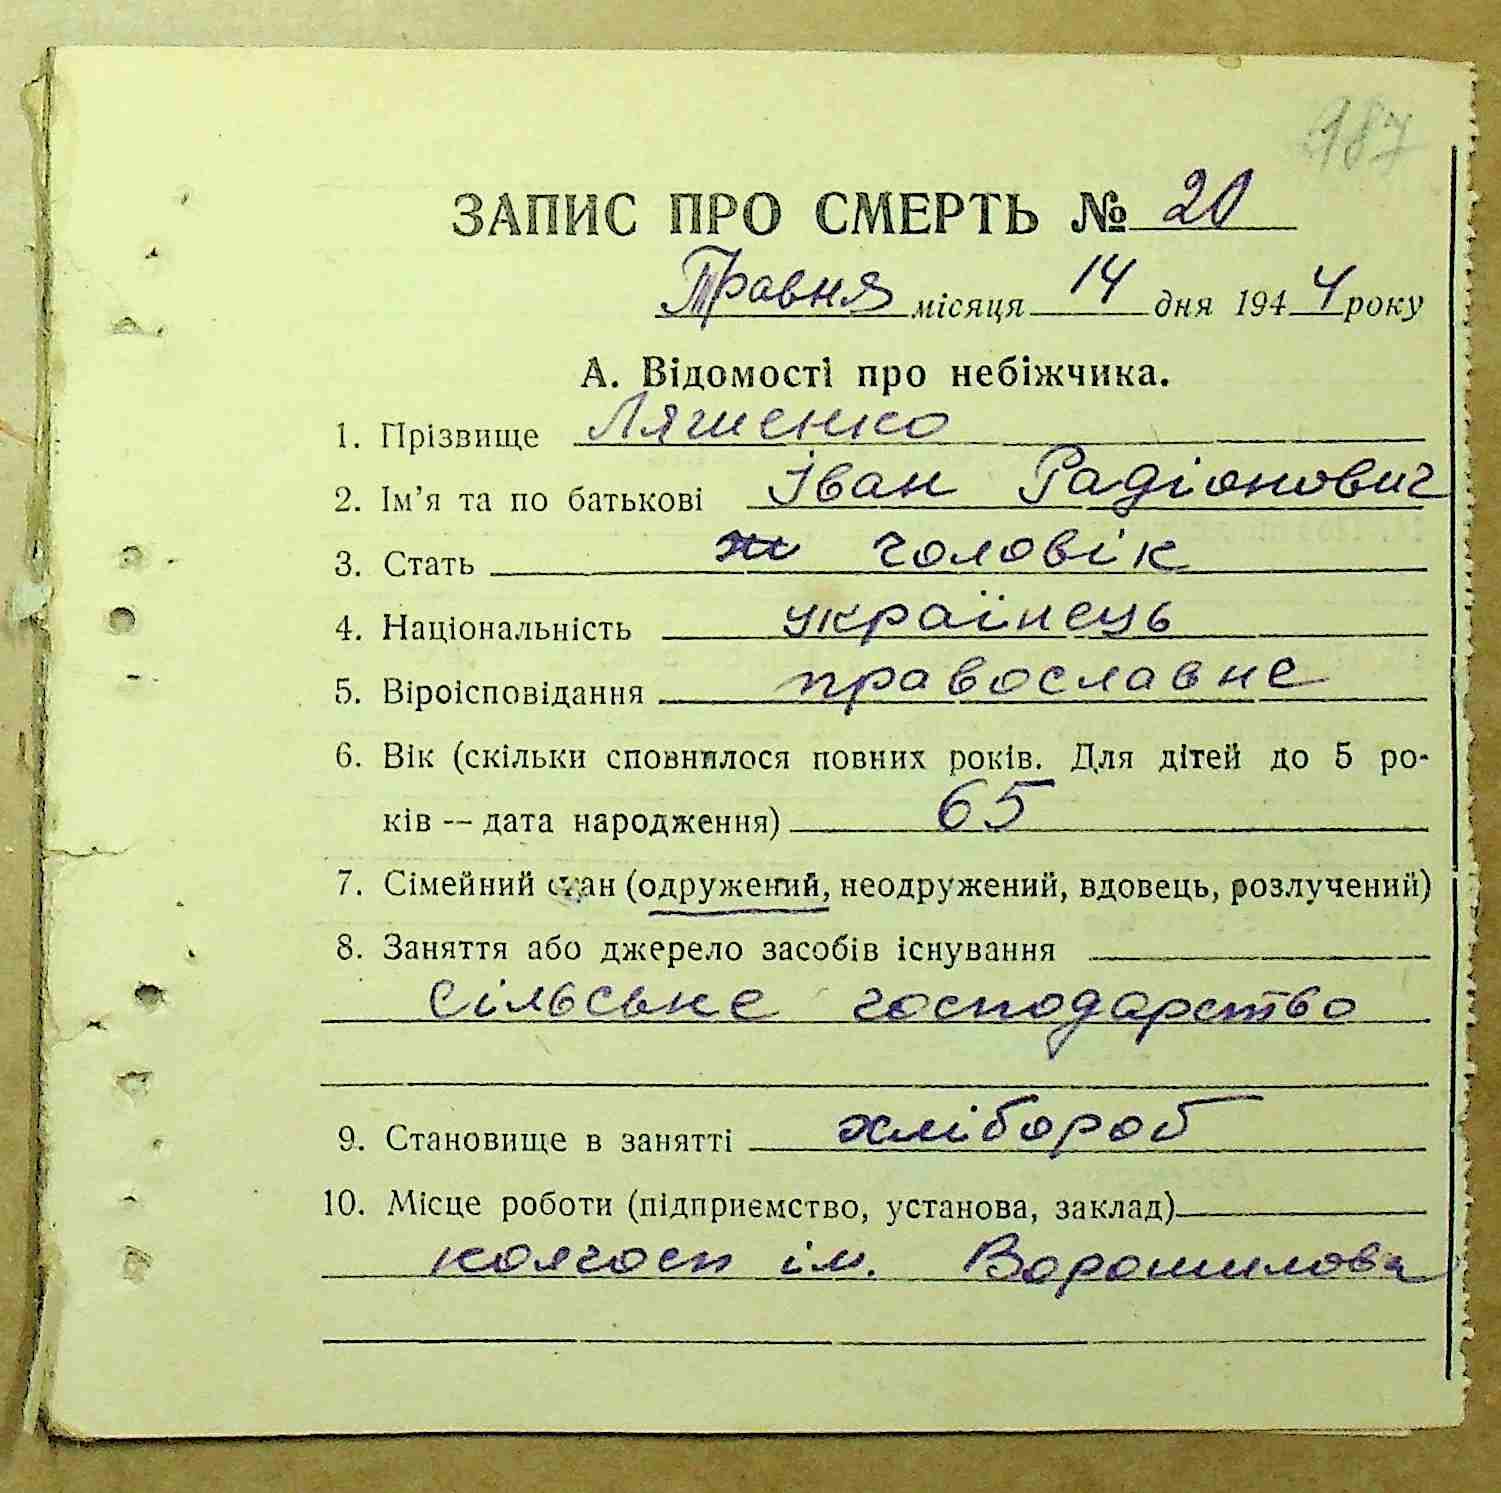 187
ЗАПИС ПРО СМЕРТЬ № 20
Травня місяця 14 дня 1944 року
А. Відомості про небіжчика.
1. Прізвище Ляшенко
2. Ім'я та по батькові Іван Радіонович
3. Стать ж чоловік
4. Національність українець
5. Віроісповідання православне
6. Вік (скільки сповнилося повних років. Для дітей до 5 ро-
ків — дата народження) 65
7. Сімейний стан (одружений, неодружений, вдовець, розлучений)
8. Заняття або джерело засобів існування
сільське господарство
9. Становище в занятті хлібороб
10. Місце роботи (підприємство, установа, заклад)
колгосп ім. Ворошилова